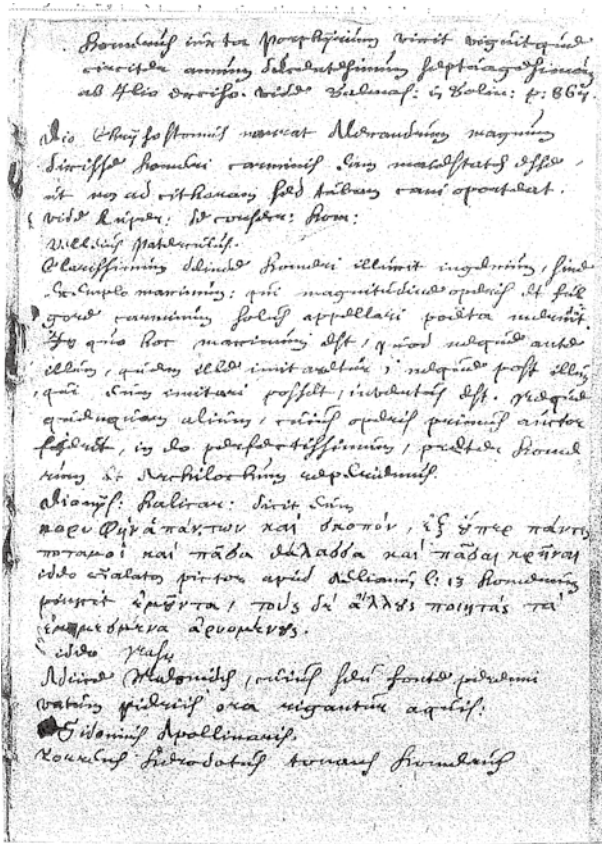 Homerus iuxta Porphyrium vixit viguitque
circiter annum ducentesimum septuagesimum
ab Ilio exciso. vide Salmas: in Solin: p: 867.
Dio Chrysostomus narrat Alexandrum magnum
dixisse Homeri carminis eam maiestatem esse,
ut non ad citharam sed tubam cani oporteat.
vide Ruper:
Velleius Paterculus.
Clarissimum deinde Homeri illuxit ingenium, sine
exemplo maximum: qui magnitudine operis et ful
gore carminum solus appellari poeta meruit.
In quo hoc maximum est, quod neque ante
illum, quem ille imitaretur, neque post illum,
qui eum imitari posset, inventus est. neque
quenquam alium, cuius operis primus auctor
fuerit, in eo perfectissimum, praeter Home
rum et Archilochum reperiemus.
Dionys: Halicar: dicit eum
κορυφὴν ἁπάντων καὶ σκοπόν, ἐξ ὗπερ πάντες
ποταμοὶ καὶ πᾶσα θάλασσα καὶ πᾶσαι κρῆναι
ideo Galaton pictor apud Aelianum l: 13 Homerum
pinxit ἐμῦντα, τοὺς δὲ ἄλλους ποιητάς τὰ
ἐμημεσμένα ἀρυομένους.
ideo
Adiice Maeonidem, cuius ceu fonte perenni
vatum pieriis ora rigantur aquis.
Sidonius Apollinaris.
Herodotus tonans Homerus